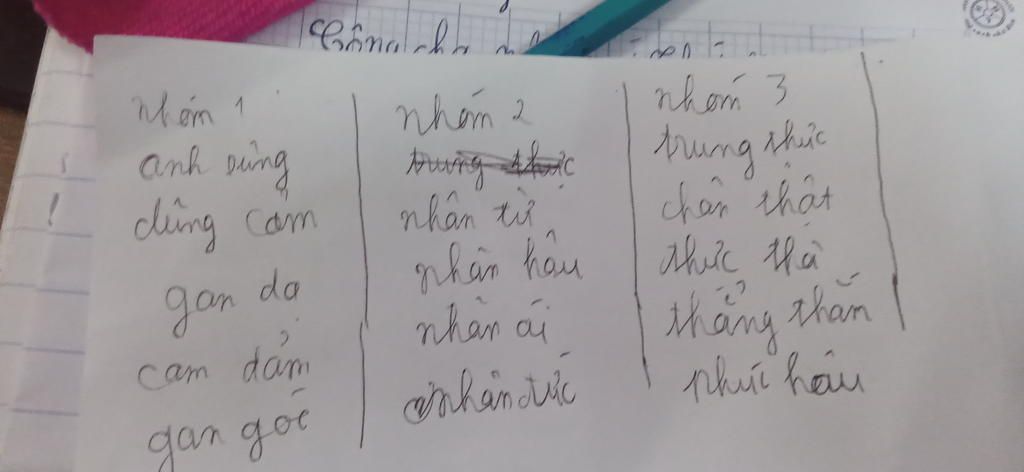 nhóm 1
anh dũng
dũng cảm
gan dạ
cam đảm
gan góc
nhóm 2
trung thực
nhân từ
nhân hậu
nhân ái
nhân đức
nhóm 3
trung thực
chân thật
thực thà
thẳng thắn
phúc hậu